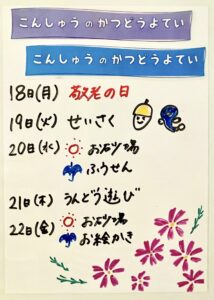 こんしゅうのかつどうよてい
こんしゅうのかつどうよてい
18日(月) 敬老の日
19日(火) せいさく
20日(水) お砂場
ふうせん
21日(木) うんどう遊び
22日(金) お砂場
お絵かき